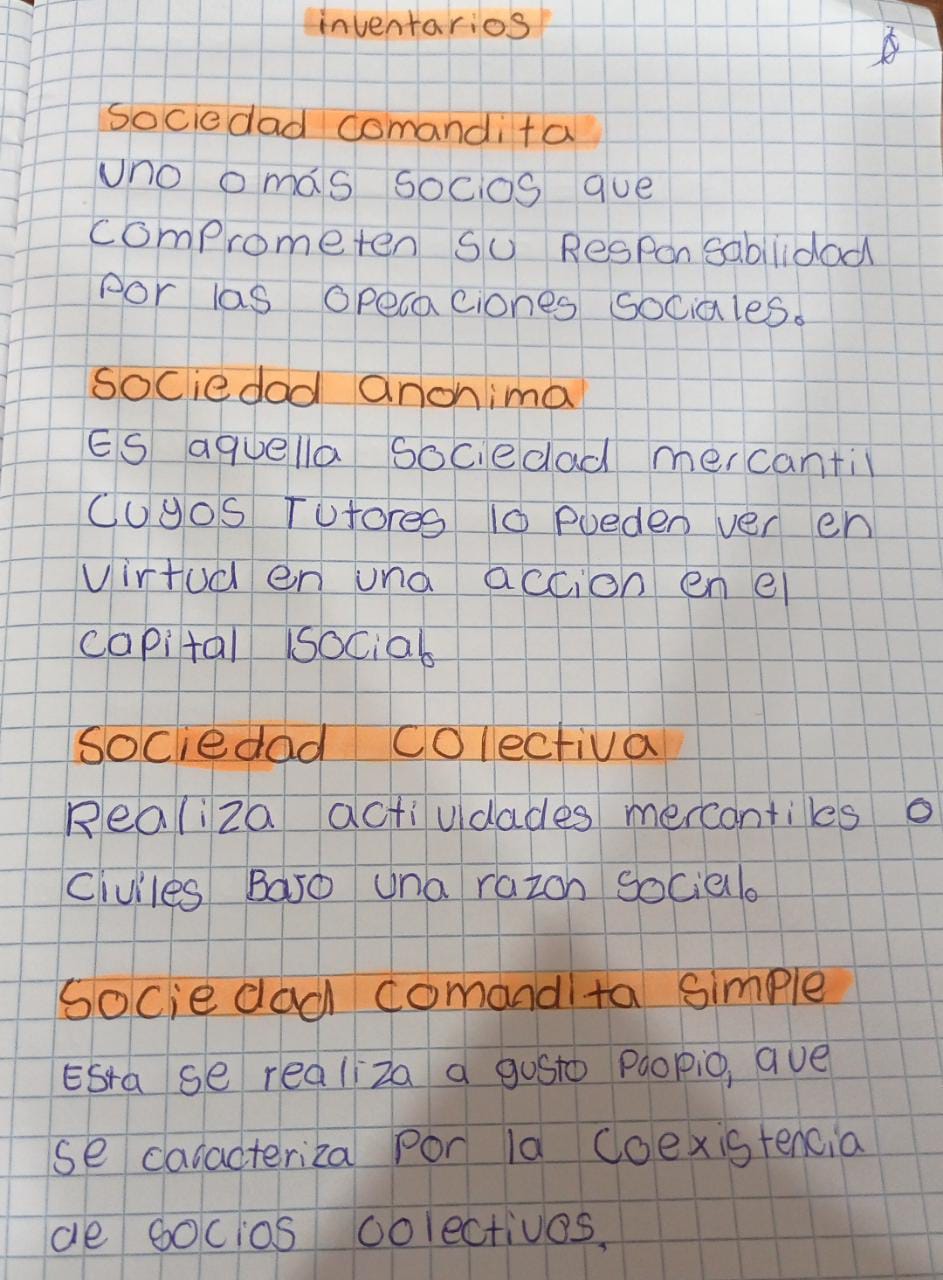 inventarios
Sociedad comandita
uno o más socios que
comprometen su Responsabilidad
por las operaciones sociales.
Sociedad anonima
Es aquella sociedad mercantil
cuyos Tutores lo pueden ver en
virtud en una accion en el
capital social.
Sociedad colectiva
Realiza actividades mercantiles o
civiles Bajo una razon social.
Sociedad comandita simple
Esta se realiza a gusto propio, que
se caracteriza por la coexistencia
de socios colectivos.